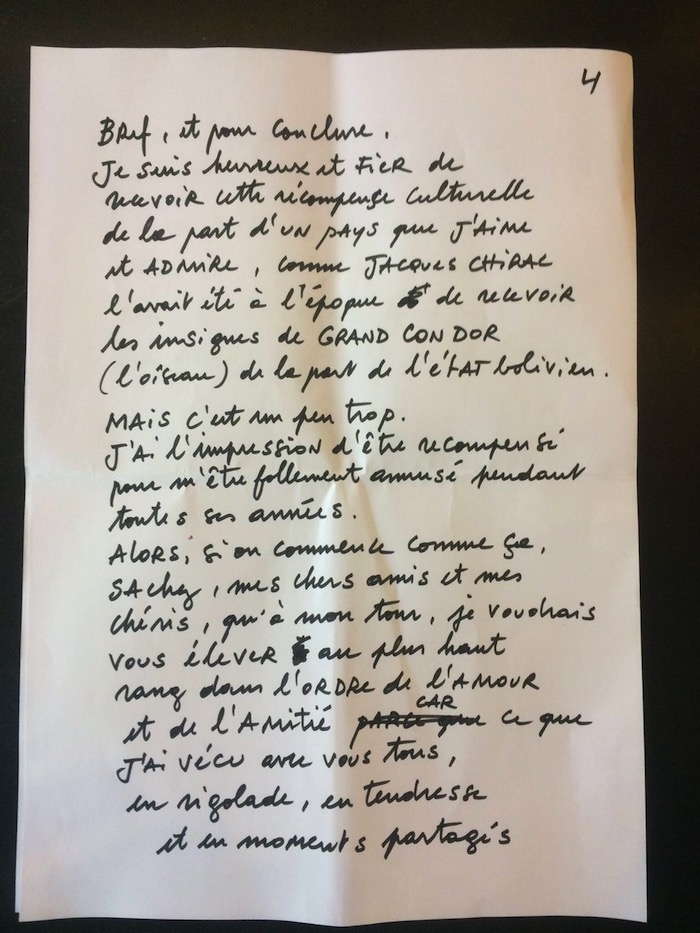 4
Bref, et pour conclure,
Je suis heureux et FIER de
recevoir cette récompense culturelle
de la part d'UN PAYS que J'AIME
et ADMIRE, comme JACQUES CHIRAC
l'avait été à l'époque de recevoir
les insignes de GRAND CONDOR
(l'oiseau) de la part de l'éTAT bolivien.
MAIS c'est un peu trop.
J'AI l'impression d'être recompensé
pour m'être follement amusé pendant
toutes ses années.
Alors, si on commence comme ça,
SAchez, mes chers amis et mes
chéris, qu'à mon tour, je voudrais
vous élever au plus haut
rang dans l'ORDRe de l'AMOUR
et de l'Amitié PARCE que CAR ce que
J'AI vécu avec vous tous,
en rigolade, en tendresse
et en moments partagés